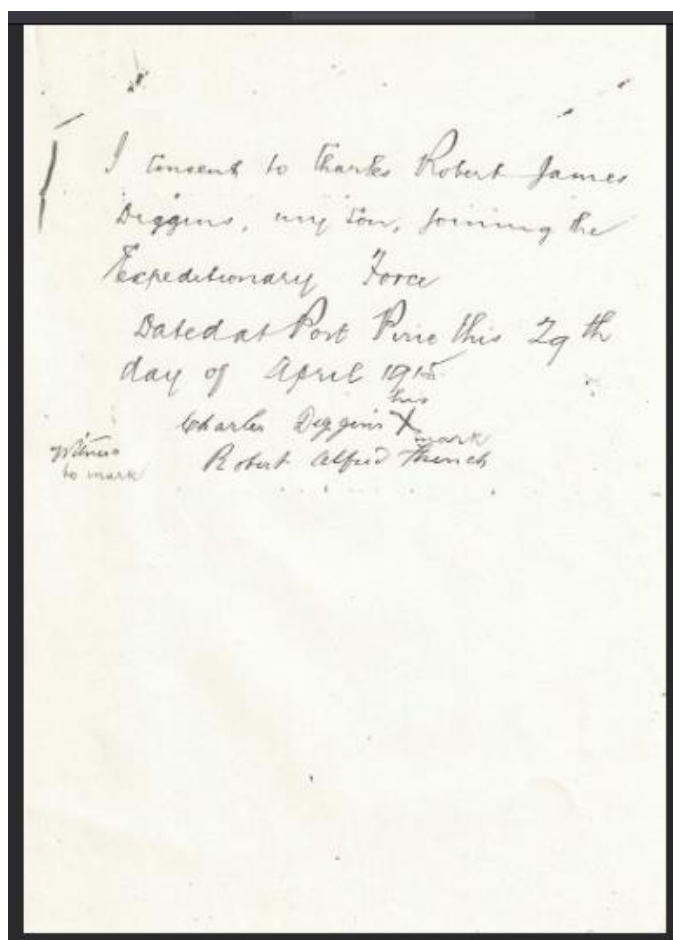 I consent to Charles Robert James
Diggins, my son, joining the
Expeditionary Force
Dated at Port Pirie this 29th
day of April 1915
his
Charles Diggins X
mark
Witness
to mark
Robert Alfred